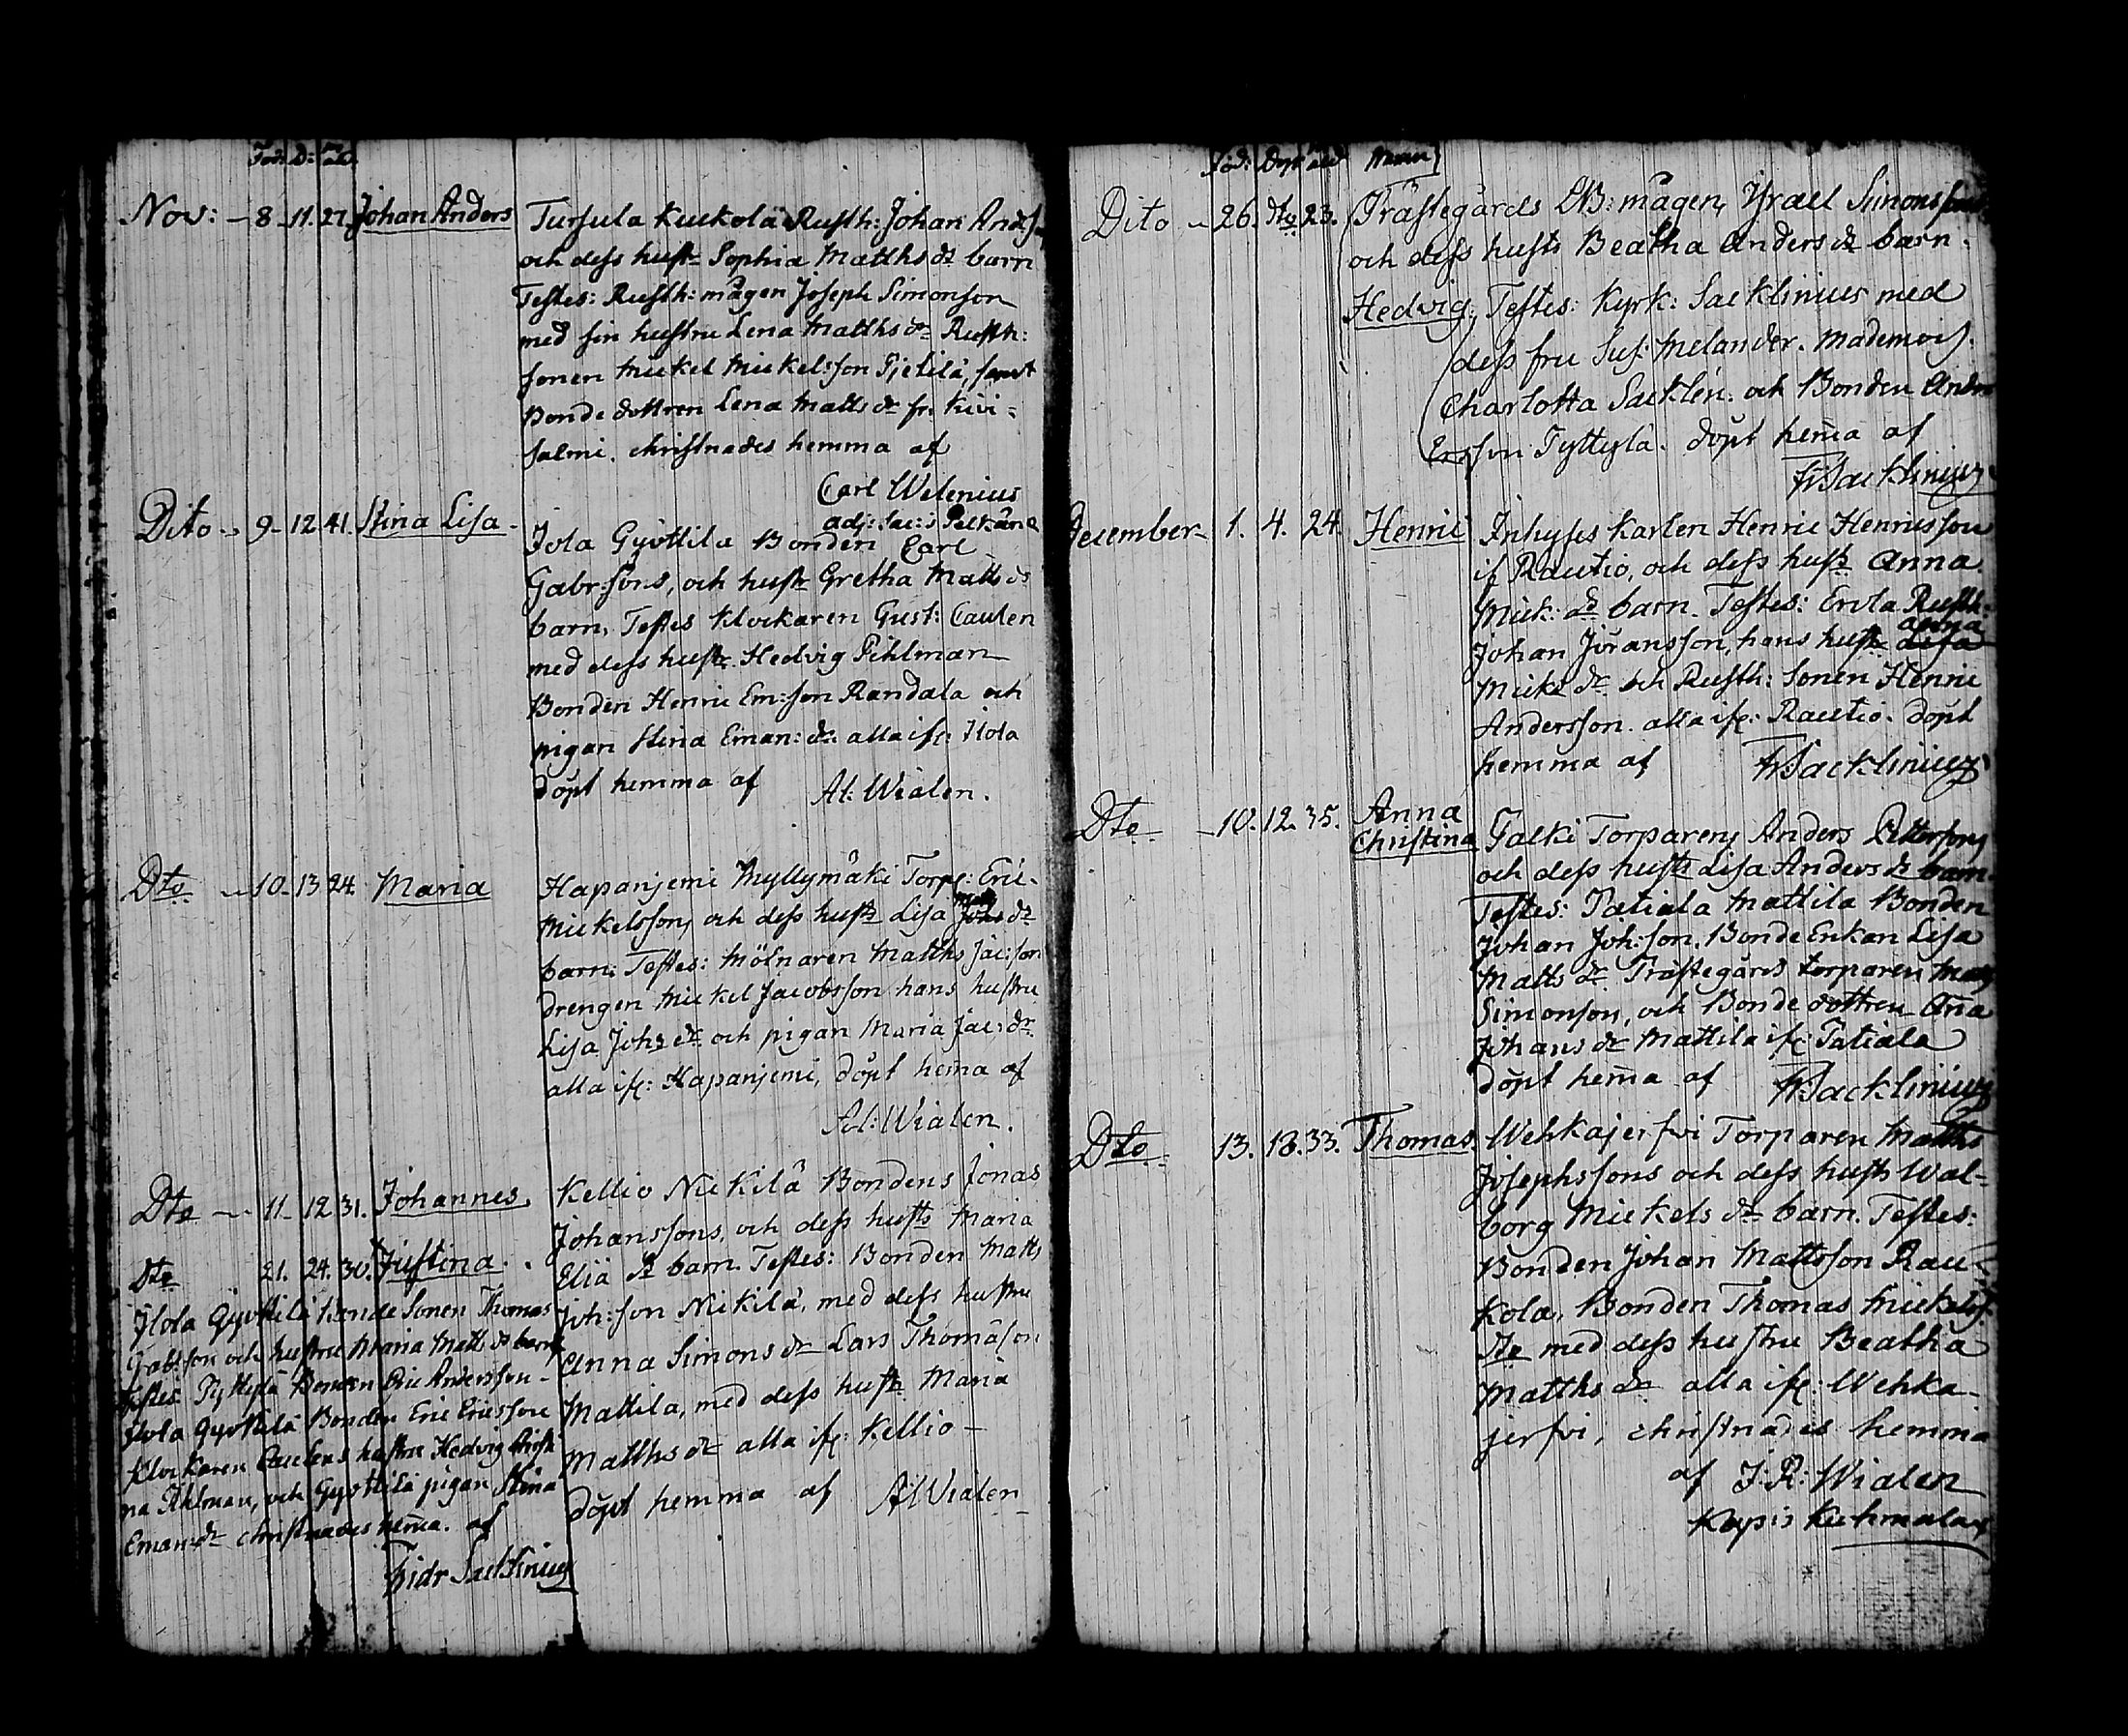 Föd: D: åld:
Nov: - 8 - 11. 27. Johan Anders
Tursula Kuckola Rusth: Johan Ands
och dess hustr Sophia Matths dr barn
Testes: Rusth: mågen Joseph Simonson
med sin hustru Lena Matths dr Rusth:
sonen Mickel Mickelsson Pjetilä, samt
Bonde dottren Lena Matts dr fr. Kivi-
salmi. christnades hemma af
Carl Welenius
adj: Sac: i Pelkäne
Dito - 9 - 12. 41. Stina Lisa -
Jola Gyöttilä Bonden Carl
Gabr:sons, och hustr Gretha Matts dr
barn. Testes Klockaren Gust: Caulen
med dess hustr. Hedvig Pihlman
Bonden Henric Em:son Randala och
pigan Stina Eman: dr. alla ifr: Ilola
döpt hemma af Al: Wialen.
Dto - 10 - 13 24. Maria
Hapanjemi Myllymäki Torp: Eric
Mickelssons och dess hustr Lisa Matts dr
barn: Testes: Mölnaren Matths Jac:son
drengen Mickel Jacobsson hans hustru
Lisa Johs dr och pigan Maria Jac: dr
alla ifr: Hapanjemi, döpt hem̄a af
Al: Wialen.
Dto - 11 - 12 31. Johannes
Kellio Nickilä Bondens Jonas
Johanssons, och dess hustr Maria
Eliä dr barn. Testes: Bonden Matts
Joh:son Nickilä, med dess hustru
Anna Simons dr Lars Thomäson
Mattila, med dess hustr Maria
Matths dr alla ifr: Kellio -
döpt hemma af Al Wialen
Dto 21. 24. 30. Justina
Ilola Gyöttilä Bonde Sonen Thomas
Gabsson och hustru Maria Matts dr barn
testes Tyttylä Bonden Eric Andersson -
Ilola Gyöttilä Bonden Eric Ericsson
Klockaren Caulens hustru Hedvig Christi
na Pihlman, och Gyöttilä pigan Stina
Eman: dr christnades hem̄a. af
Fridr Sacklinius
Föd: Döpt åld Namn
Dito - 26. dto 23.
Prästegårds LB: mågen, Ysrael Simons
och dess hustr Beatha Anders dr barn.
Hedvig. Testes: Kyrk: Sacklinius med
dess fru Sus: Melander. Mademois.
Charlotta Sacklén. och Bonden Andrs
Ersson Tyttylä. döpt hem̄a af
Fr Sacklinius
December - 1. 4. 24. Henric
Inhyses Karlen Henric Henricsson
if Rautio, och dess hustr Anna
Mick: dr barn. Testes: Erola Rusth:
Johan Jöransson, hans hustr Anna
Mickl dr och Rusth: Sonen Henric
Andersson. alla ifr: Rautio. döpt
hemma af Fr Sacklinius
Dto - 10. 12. 35. Anna
Christina
Talki Torparens Anders Pettersons
och dess hustr Lisa Anders dr barn.
Testes: Tatiala Mattila Bonden
Johan Joh:son. Bonde Enkan Lisa
Matts dr Prästegårds torparen Matts
Simonson, och Bonde dottren An̄a
Johans dr Mattila ifr: Tatiala
döpt hem̄a af Fr Sacklinius
Dto - 13. 18. 33. Thomas.
Wehkajerfvi Torparen Matths
Josephssons och dess hustr Wal-
borg Mickels dr barn. Testes:
Bonden Johan Mattsson Rau-
kola, Bonden Thomas Mickelss:
dto med dess hustru Beatha
Matths dr alla ifr: Wehka-
jerfvi, christnades hemma
af J: R: Wialen
Kapis Kuhmalax